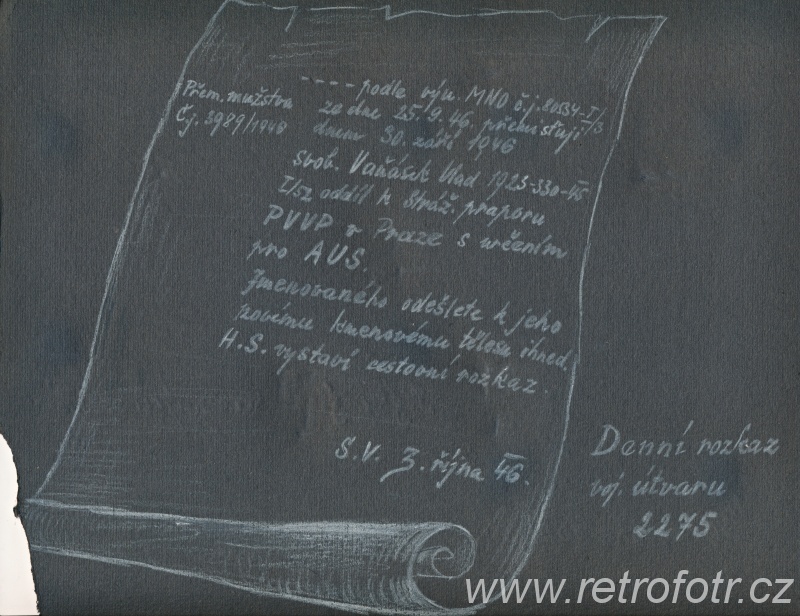 Přem. mužstva
Čj. 3989/1946
- - - - podle výn. MNO č.j. 80534-I/3
ze dne 25.9.46. přemisťuji
dnem 30. září 1946
svob. Vaňásek Vlad 1923-330-45
I/52 oddíl k Stráž. praporu
PVVP v Praze s určením
pro AUS.
Jmenovaného odešlete k jeho
novému kmenovému tělesu ihned.
H.S. vystaví cestovní rozkaz.
S.V. 3. října 46.
Denní rozkaz
voj. útvaru
2275
www.retrofotr.cz